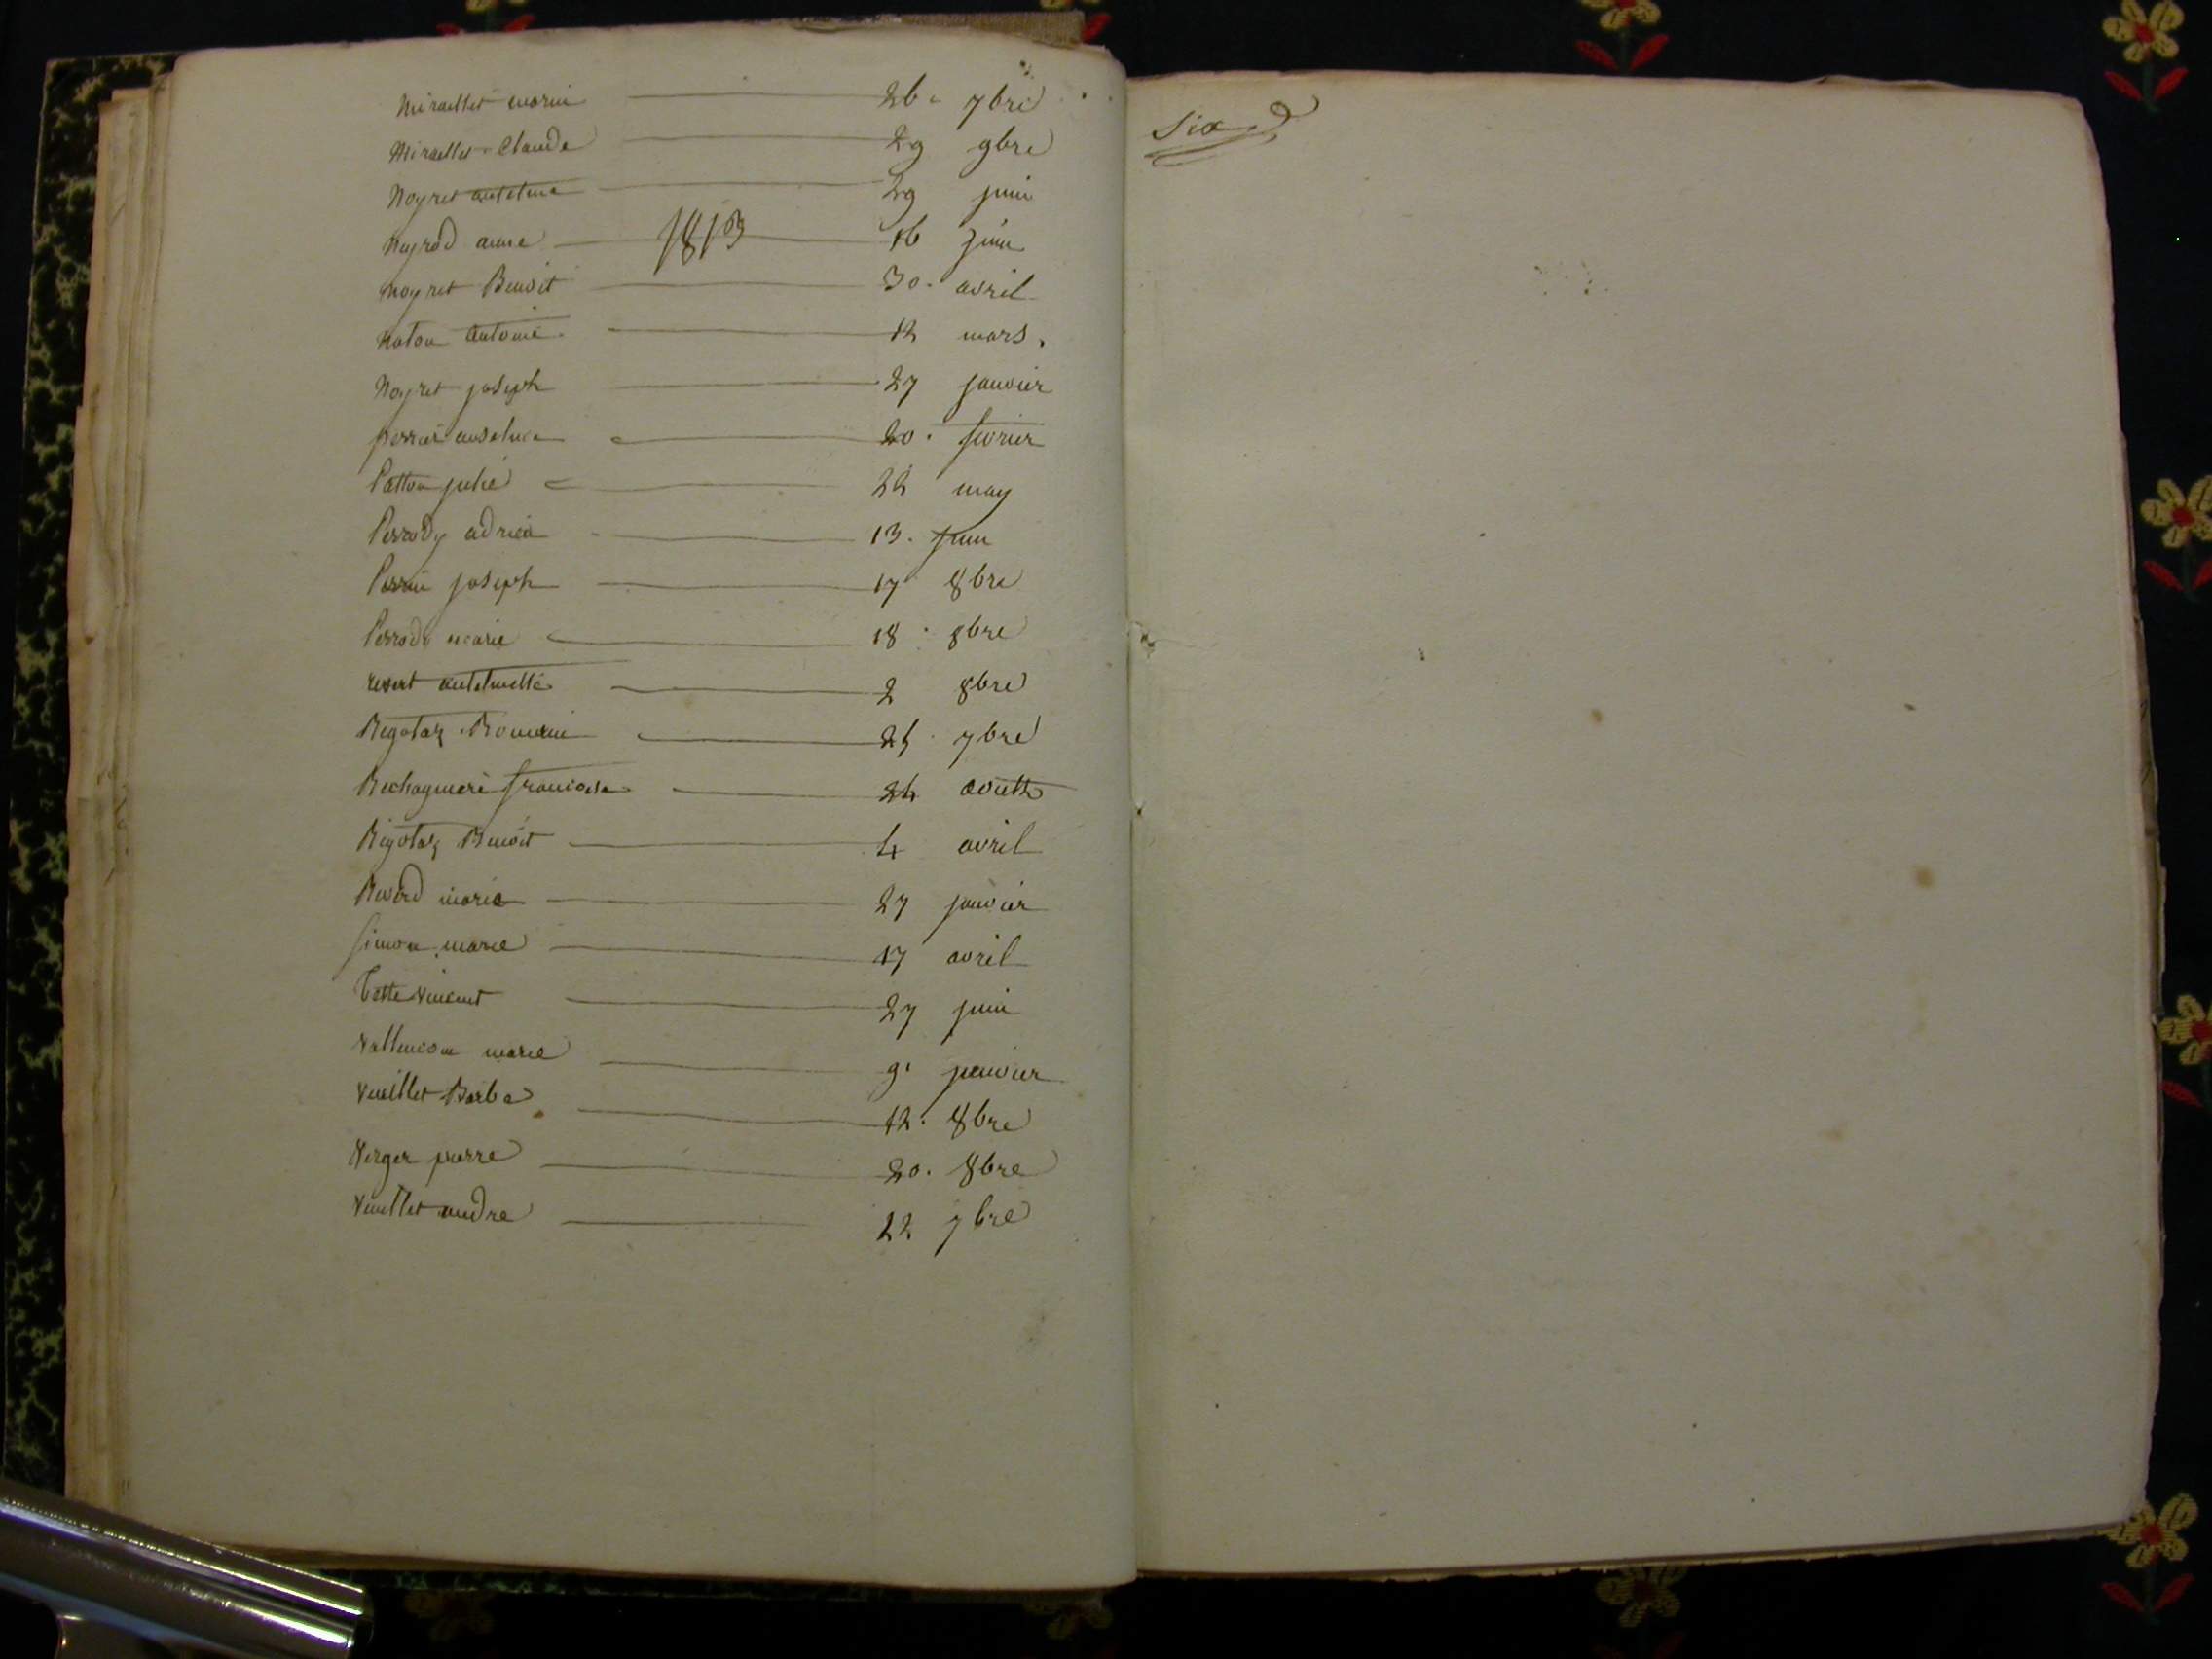 Miraillet marie 26. 7bre
Miraillet Claude 29 9bre
Noyret antelme 29 juin
Neyrod anne 1813 16 juin
Noyret Benoit 30. avril
Naton Antoine 12 mars.
Noyret joseph 27 janvier
perrier anselme 20. fevrier
Patton julie 22 may
Perrody adrien 13. juin
Perrin joseph 17 8bre
Perrody marie 18 8bre
revert antelmette 2 8bre
Rigotaz Romain 25 7bre
Rechagniere francoise 24 aoutt
Rigotaz Benoit 4 avril
Reverd marie 27 janvier
Simon marie 17 avril
Teste vincent 27 juin
marie 9 janvier
Veuillet Barbe 12. 8bre
Verger pierre 20. 8bre
Veuillet andre 22 7bre
Six